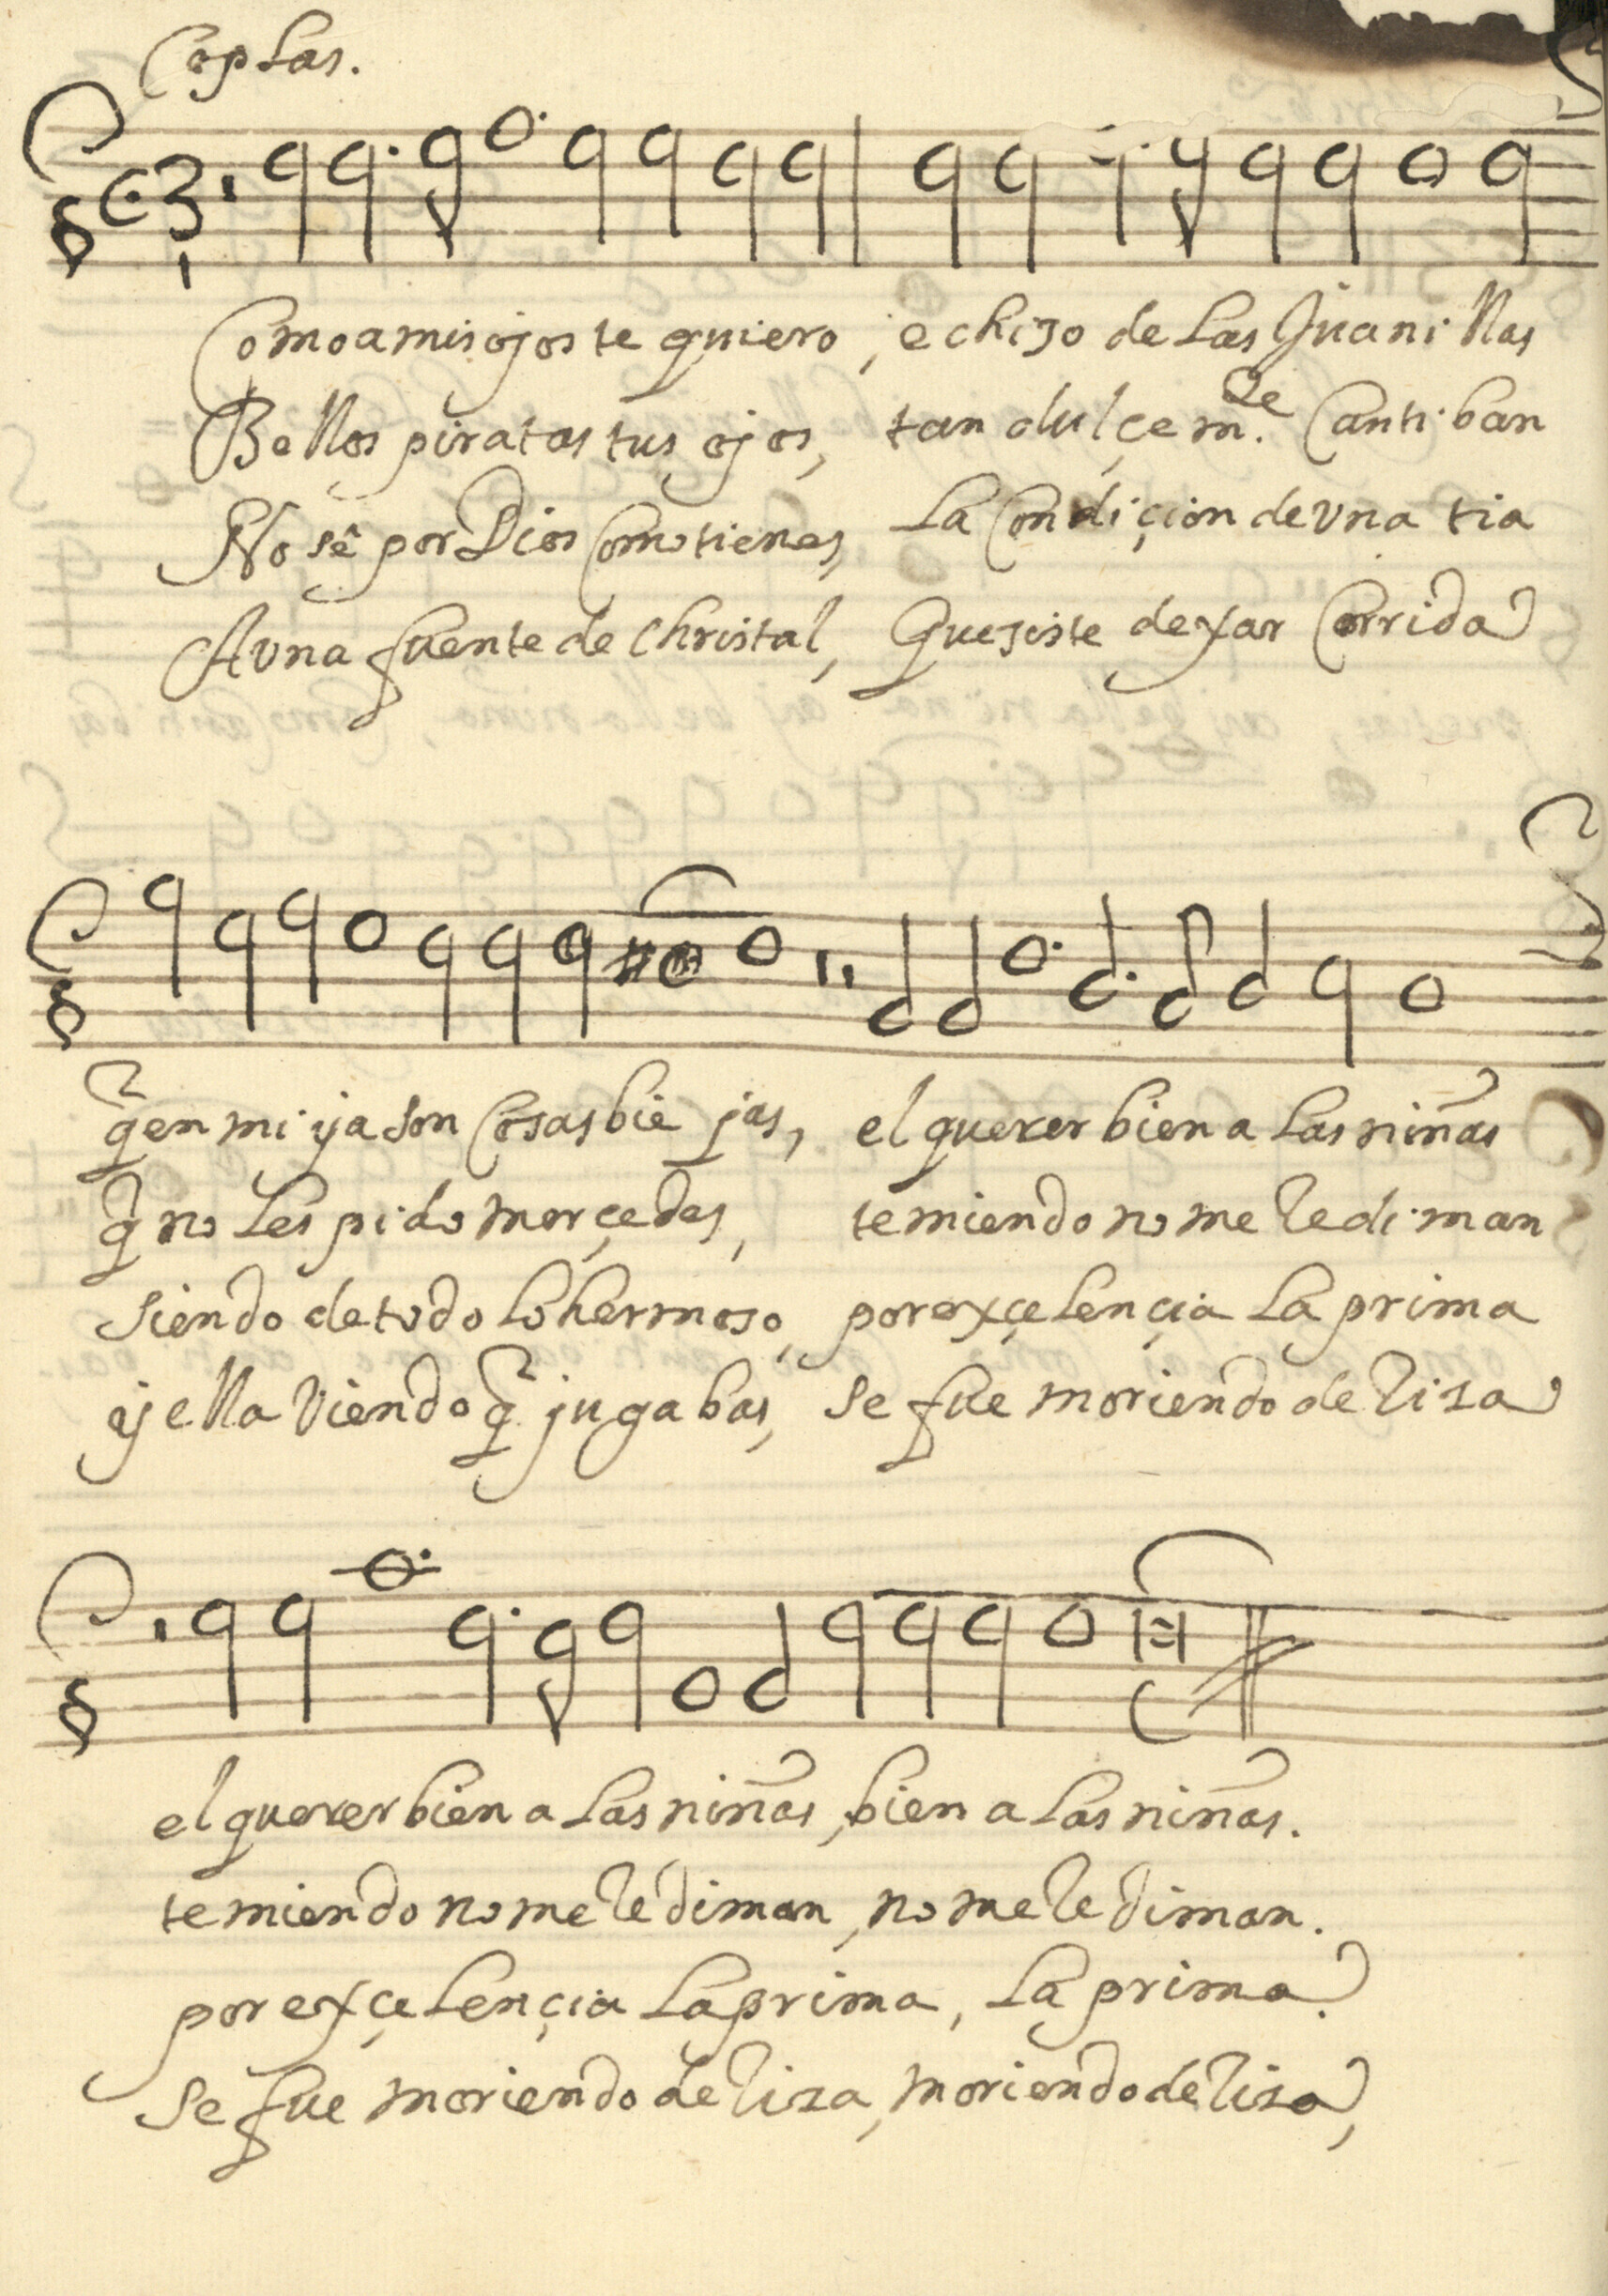 Coplas.
Como a mis ojos te quiero, echizo de las Juanillas
Bellos piratas tus ojos, tan dulçem.te Cautiban
No sê por Dios Como tienes, la Condiçion de vna tia
A vna fuente de Christal, Quesiste dexar Corrida
q̃ en mi ya son Cosas biejas, el querer bien a las niñas
q̃ no les pido merçedes, temiendo no me ledi man
Siendo de todo lo hermoso, por exçelençia la prima
y ella Viendo q̃ jugabas, se fue moriendo de Risa
el querer bien a las niñas, bien a las niñas.
temiendo no me Rediman, no me Rediman.
por exçelençia la prima, la prima.
Se fue moriendo de Risa, moriendo de Risa,